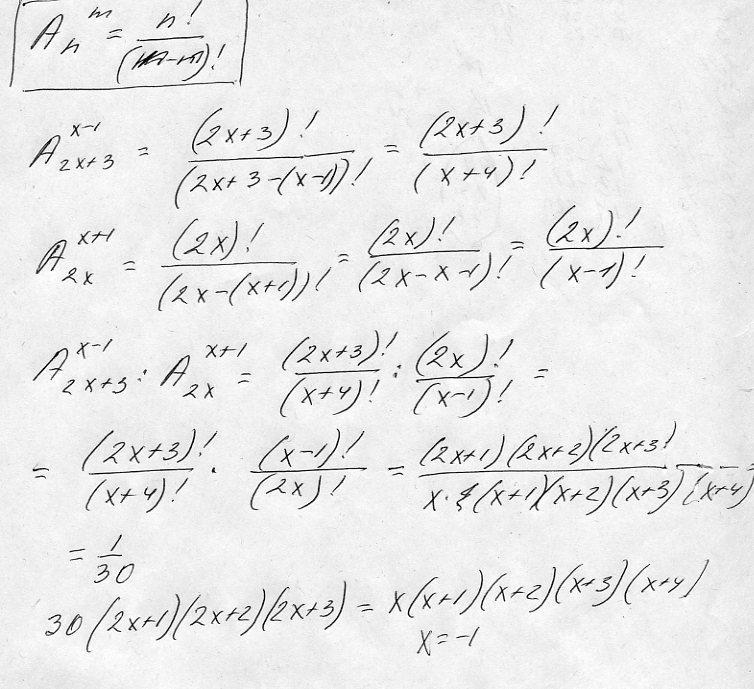 A_n^m = n! / (n-m)!
A_{2x+3}^{x-1} = (2x+3)! / (2x+3-(x-1))! = (2x+3)! / (x+4)!
A_{2x}^{x+1} = (2x)! / (2x-(x+1))! = (2x)! / (2x-x-1)! = (2x)! / (x-1)!
A_{2x+3}^{x-1} : A_{2x}^{x+1} = (2x+3)! / (x+4)! : (2x)! / (x-1)! =
= (2x+3)! / (x+4)! · (x-1)! / (2x)! = (2x+1)(2x+2)(2x+3! / x·(x+1)(x+2)(x+3)(x+4) =
= 1/30
30(2x+1)(2x+2)(2x+3) = x(x+1)(x+2)(x+3)(x+4)
x=-1